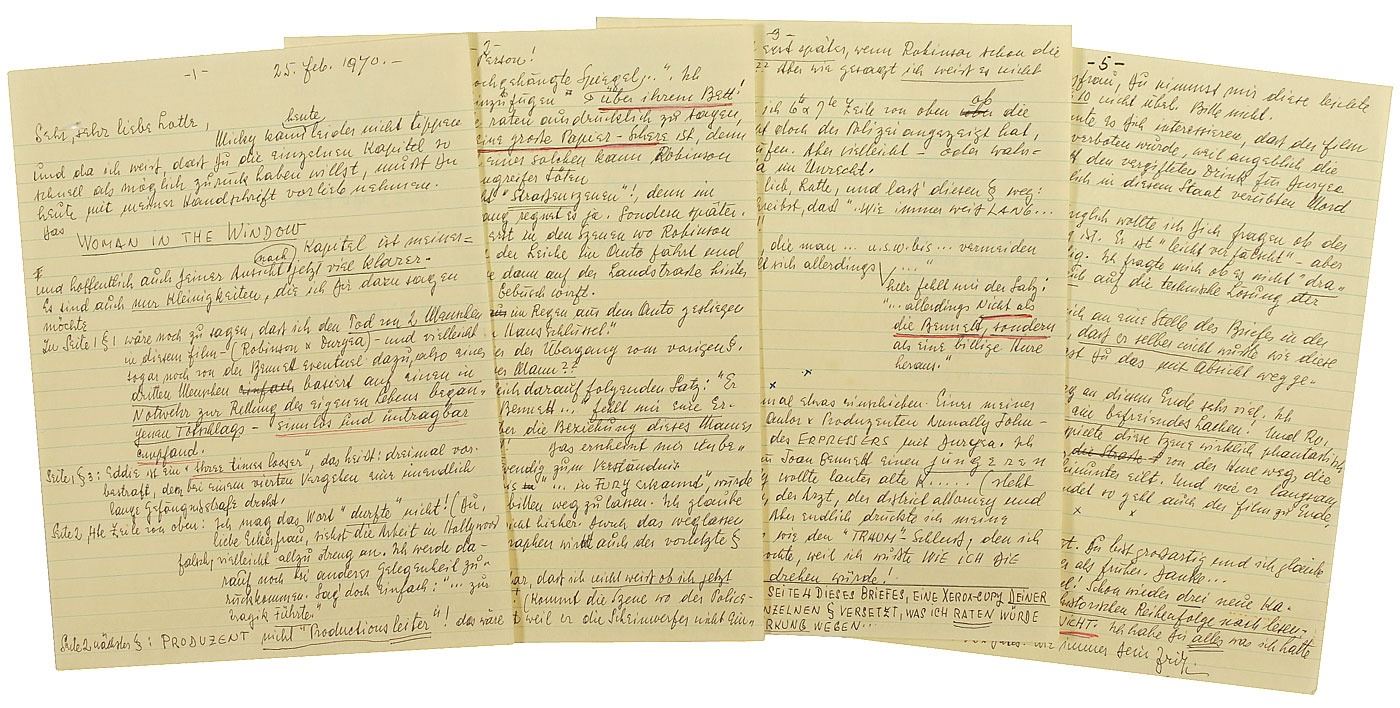 -1-
25. Feb. 1970.-
Sehr, sehr liebe Lotte,
heute
Micky kann leider nicht tippen
und da ich weiss, dass Du die einzelnen Kapitel so
schnell als möglich zurück haben willst, musst Du
heute mit meiner Handschrift vorlieb nehmen.
Das
WOMAN IN THE WINDOW
(nach) Kapitel ist meiner-
und hoffentlich auch Deiner Ansicht jetzt viel klarer.
Es sind auch nur Kleinigkeiten, die ich Dir dazu sagen
möchte
Zu Seite 1 § 1 wäre noch zu sagen, dass ich den Tod von 2 Menschen
in diesem Film - (Robinson & Duryea) - und vielleicht
sogar noch von der Bennett eventuel dazu, also eines
dritten Menschen einfach basiert auf einen in
Notwehr zur Rettung des eigenen Lebens began-
genen Totschlags - sinnlos und untragbar
empfand.
Seite 1, § 3: Eddie ist ein "three times looser", das heist: dreimal vor-
bestraft, dem bei einem vierten Vergehen eine unendlich
lange Gefängnisstrafe droht.
Seite 2 4te Zeile von oben: Ich mag das Wort "durfte" nicht! (Du,
liebe Eisnerfrau, siehst die Arbeit in Hollywood
falsch, vielleicht allzu streng an. Ich werde da-
rauf noch bei anderer Gelegenheit zu-
rückkommen. Sag' doch einfach: "... zur
Tragik führte."
Seite 2 nächster §: PRODUZENT nicht "Productionsleiter"! das wäre
2
Person!
ochgehängte Spiegel,..". Ich
inzufügen "über ihrem Bett!
raten ausdrücklich zu sagen,
eine grosse Papier-Schere ist, denn
einer solchen kann Robinson
ngreifer töten
"Strassenszenen"!, denn im
ang regnet es ja. Sondern später.
erst in den Szenen wo Robinson
der Leiche im Auto fährt und
e dann auf der Landstrasse hinter
Gebüsch wirft.
im Regen aus dem Auto gestiegen
Hausschlüssel"
er der Übergang vom vorigen §.
er Mann??
eich darauf folgenden Satz: "Er
Bennett..." fehlt mir eine Er-
ber die Beziehung dieses Mannes
! Das erscheint mir unbe-
wendig zum Verständnis
"... in FURY erkannt", würde
bitten weg zu lassen. Ich glaube
nicht hieher. Durch das weglassen
raphen wirkt auch der vorletzte §
ar, dass ich nicht weiss ob ich jetzt
(Kommt die Szene wo der Polics-
t weil er die Scheinwerfer nicht ein-
-3-
erst später, wenn Robinson schon die
?? Aber wie gesagt ich weiss es nicht
ob
sich 6te 7te Zeile von oben die
doch der Polizei angezeigt hat,
üfen. Aber vielleicht - oder wahr-
im Unrecht.
lich, Ratte, und lass' diesen § weg:
reibst, dass "..Wie immer weiss LANG...
die man ... u.s.w. bis... vermeiden
st sich allerdings ...."
hier fehlt mir der Satz:
"... allerdings Nicht als
die Bennett, sondern
als eine billige Hure
heraus."
x x
mal etwas einschieben. Einer meiner
Autor & Produzenten Nunally John-
des ERPRESSERS mit Duryea. Ich
Joan Bennett einen jüngeren
wollte lauter alte K...... (sieht
der Arzt, der district attorney und
Aber endlich drückte ich meine
wie den "TRAUM"-Schluss, den ich
ochte, weil ich wusste WIE ICH DIE
drehen würde!
SEITE 4 DIESES BRIEFES, EINE XEROX-COPY DEINER
NZELNEN § VERSETZT, WAS ICH RATEN WÜRDE
RKUNG WEGEN...
-5-
frau, Du nimmst mir diese leichte
10 nicht übel. Bitte nicht.
nte es Dich interessieren, dass der Film
verboten wurde, weil angeblich die
den vergifteten Drink für Duryea
lich in diesem Staat verübten Mord
nglich wollte ich Dich fragen ob des
ist. Es ist "leicht verfackt" - aber
ig. Ich fragte mich ob es nicht "dra-
auf die technische Lösung der
ich an eine Stelle des Briefes in der
dass er selber nicht wusste wie diese
st Du das mit Absicht wegge-
an diesem Ende sehr viel. Ich
ein befreiendes Lachen! Und Ro,
spielte diese Szene wirklich phantastisch
die Strasse von der Hure weg die
hinunter eilt. Und wie er langsam
ndet so geht auch der Film zu Ende.
x x
t. Du bist grossartig und ich glaube
als früher. Danke...
! Schon wieder drei neue Ka-
storischen Reihenfolge nach lesen -
NICHT. Ich habe Dir alles was ich hatte
wie immer Dein Fritz